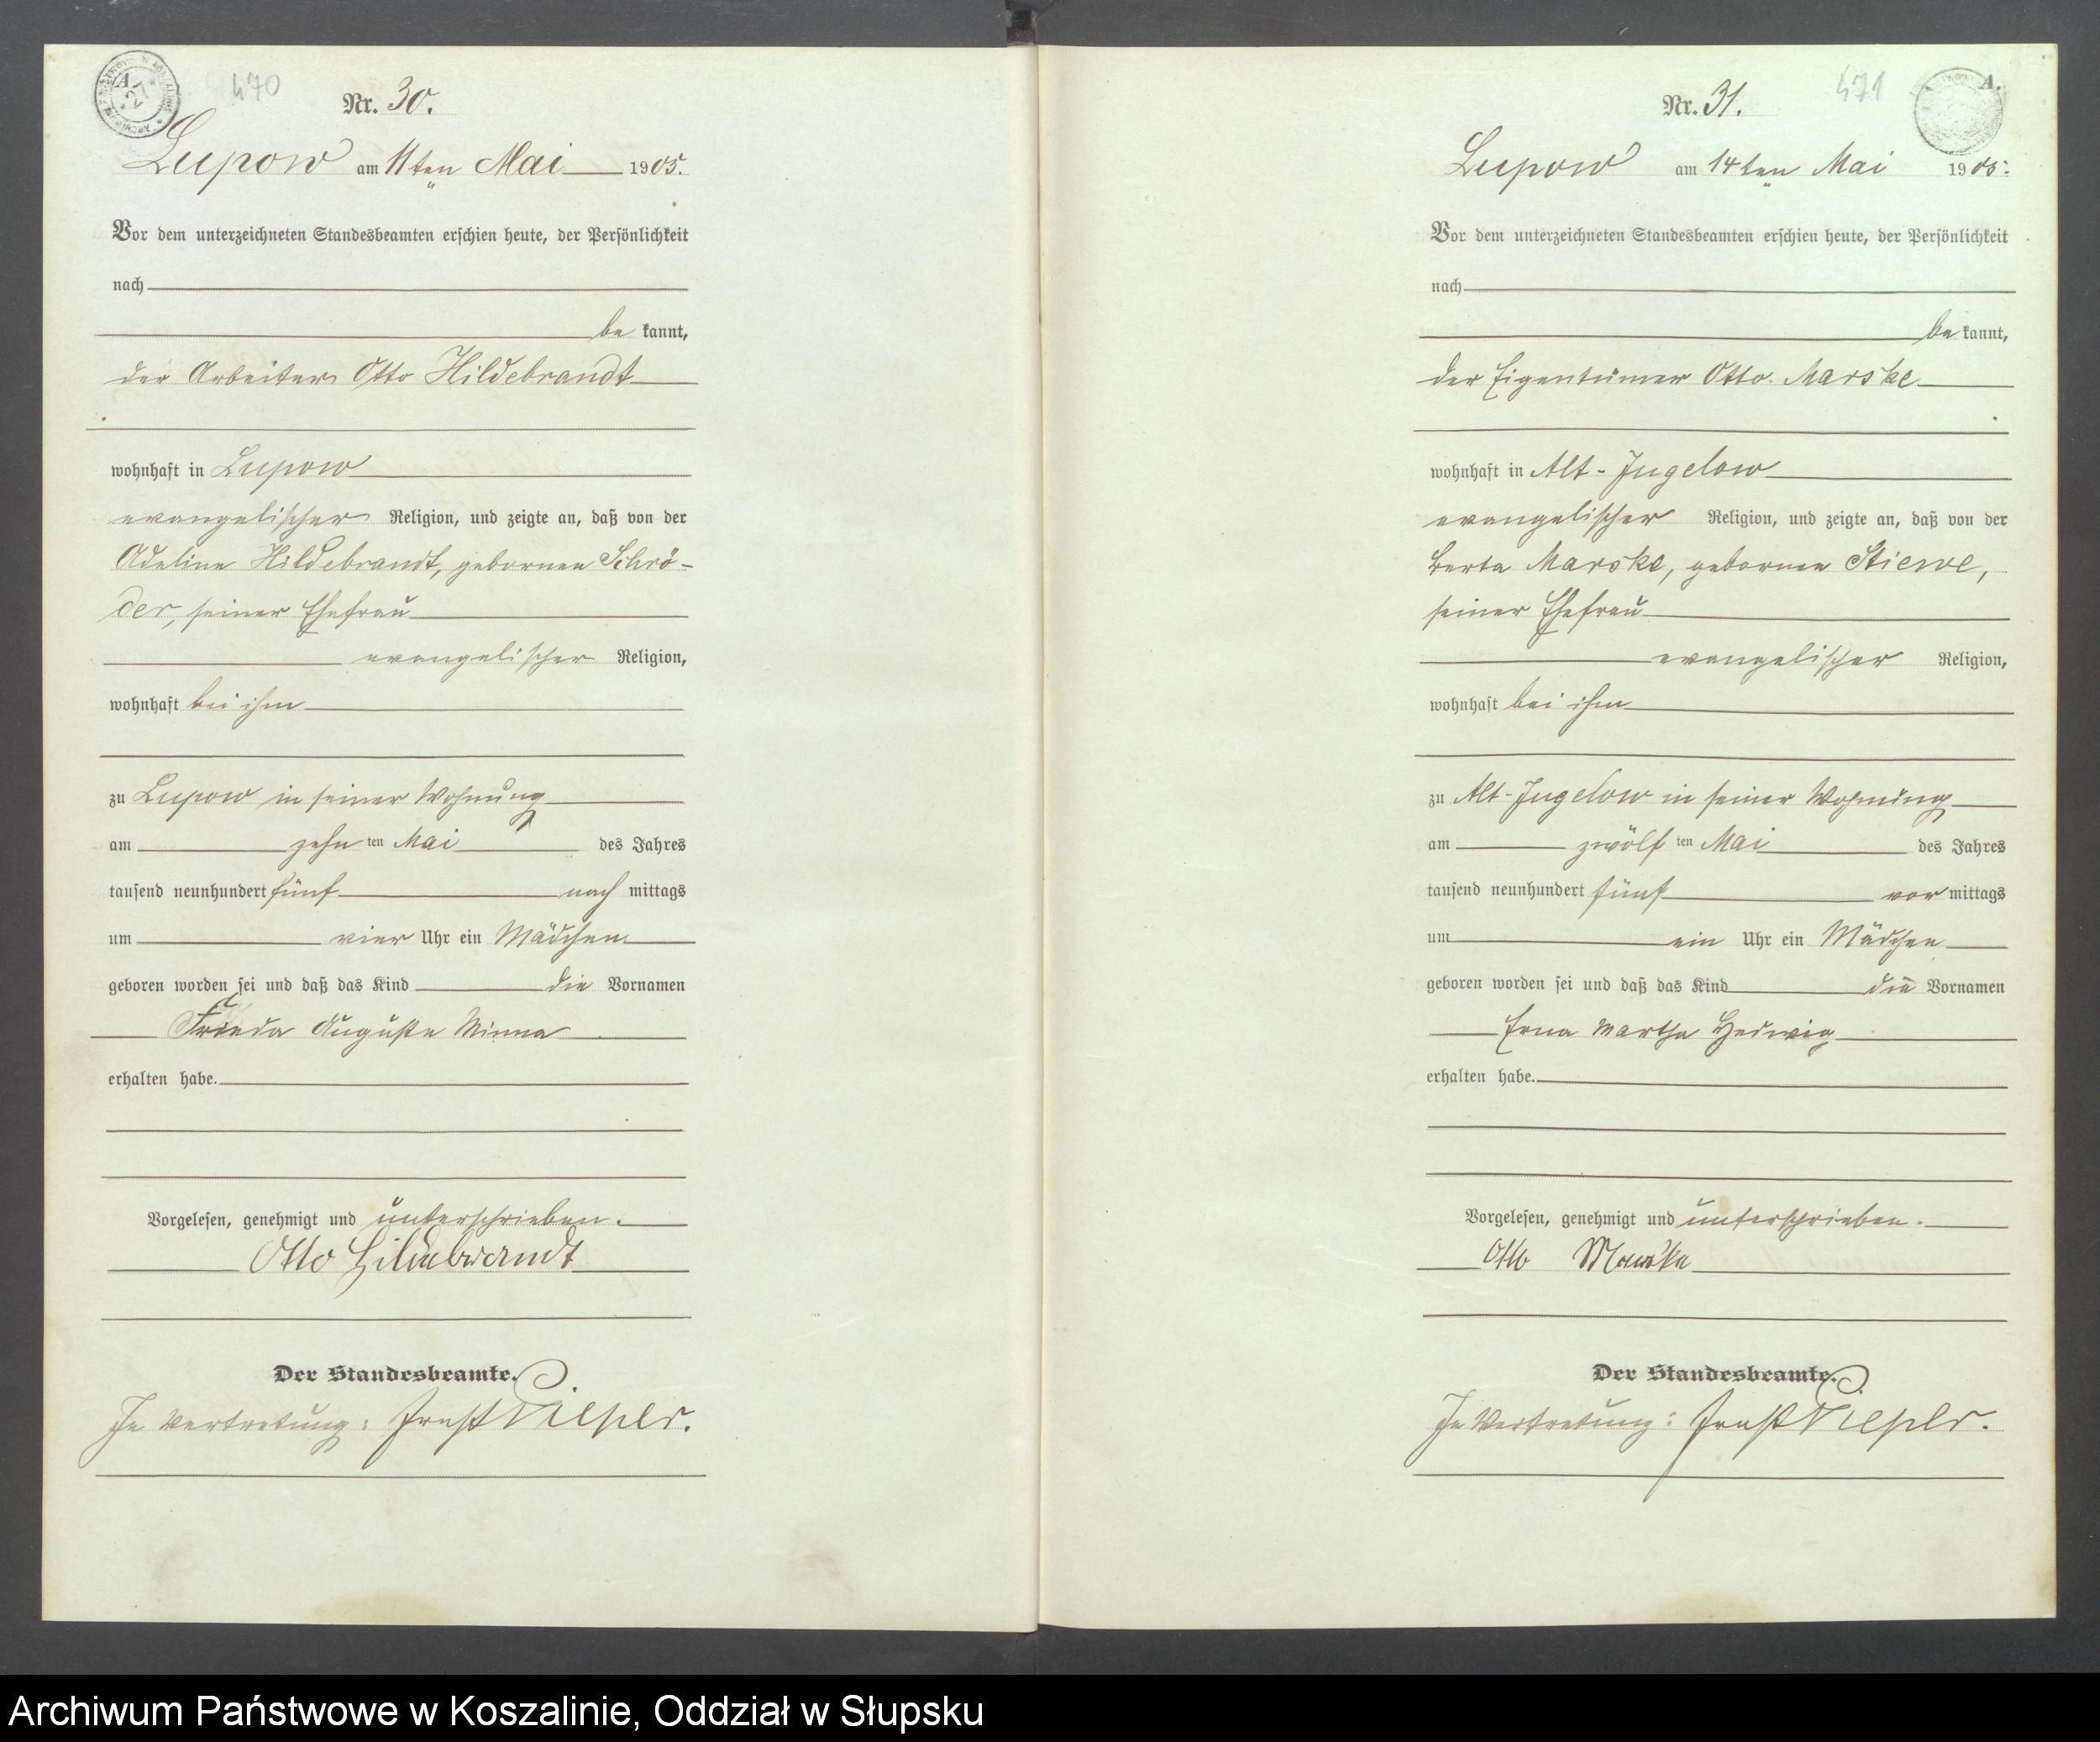 470
Nr. 30.
Lupow am 11ten Mai 1905.
Vor dem unterzeichneten Standesbeamten erschien heute, der Persönlichkeit
nach
be kannt,
der Arbeiter Otto Hildebrandt
wohnhaft in Lupow
evangelischer Religion, und zeigte an, daß von der
Adeline Hildebrandt, gebornen Schrö-
der, seiner Ehefrau
evangelischer Religion,
wohnhaft bei ihm
zu Lupow in seiner Wohnung
am zehn ten Mai des Jahres
tausend neunhundert fünf nach mittags
um vier Uhr ein Mädchen
geboren worden sei und daß das Kind die Vornamen
Frieda Auguste Minna
erhalten habe.
Vorgelesen, genehmigt und unterschrieben.
Otto Hildebrandt
Der Standesbeamte.
In Vertretung: Ernst Pieper.
471
A.
Nr. 31.
Lupow am 14ten Mai 1905.
Vor dem unterzeichneten Standesbeamten erschien heute, der Persönlichkeit
nach
be kannt,
der Eigentümer Otto Marske
wohnhaft in Alt-Jugelow
evangelischer Religion, und zeigte an, daß von der
Berta Marske, gebornen Stiewe,
seiner Ehefrau
evangelischer Religion,
wohnhaft bei ihm
zu Alt-Jugelow in seiner Wohnung
am zwölf ten Mai des Jahres
tausend neunhundert fünf vor mittags
um ein Uhr ein Mädchen
geboren worden sei und daß das Kind die Vornamen
Erna Martha Hedwig
erhalten habe.
Vorgelesen, genehmigt und unterschrieben.
Otto Marske
Der Standesbeamte.
In Vertretung: Ernst Pieper.
Archiwum Państwowe w Koszalinie, Oddział w Słupsku